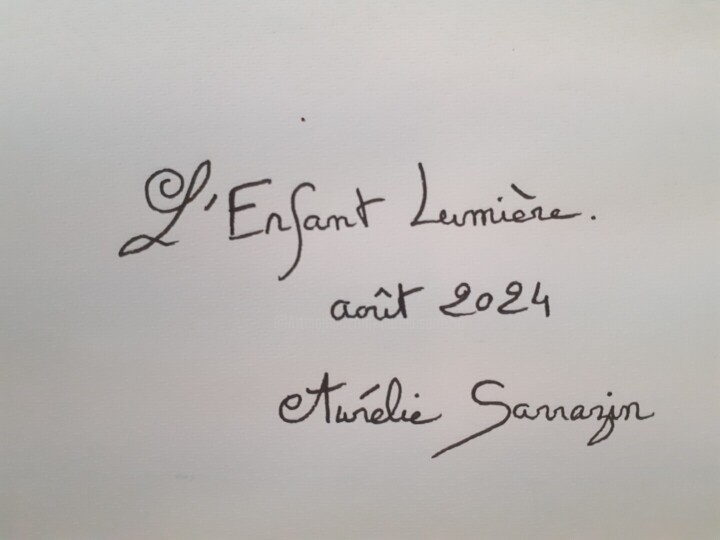 L'Enfant Lumière.
août 2024
Aurélie Sarrazin